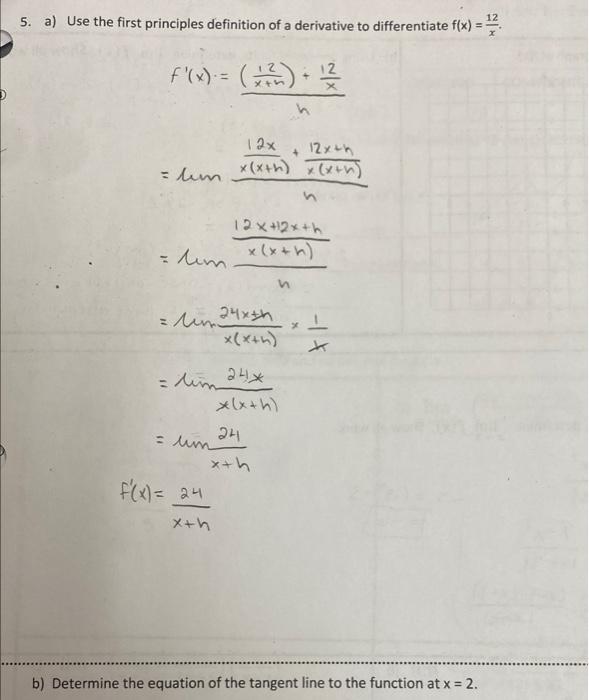 5. a) Use the first principles definition of a derivative to differentiate f(x) = 12/x.
f'(x) = ((12/(x+h)) + 12/x)/h
= lim (12x/(x(x+h)) + (12x+h)/(x(x+h)))/h
= lim ((12x+12x+h)/(x(x+h)))/h
= lim (24x+h)/(x(x+h)) × 1/h
= lim 24x/(x(x+h))
= lim 24/(x+h)
f'(x) = 24/(x+h)
b) Determine the equation of the tangent line to the function at x = 2.